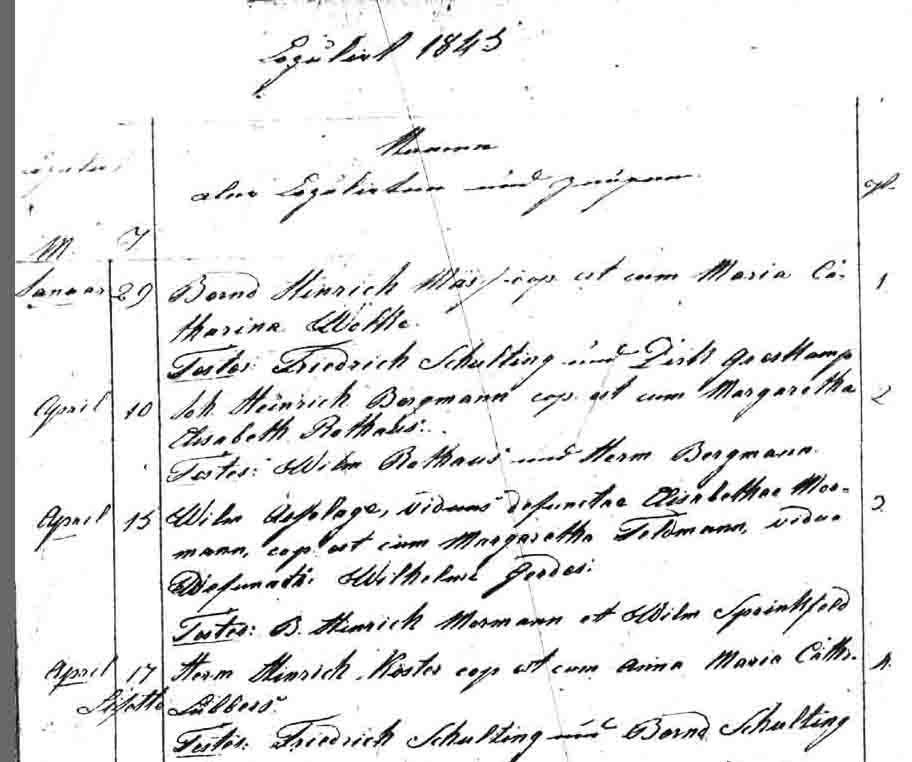 Copulirt 1845
Namen
der Copulirten und Zeugen
M. T.
Januar 29 Bernd Hinrich cop. est cum Maria Ca- 1
tharina Wölke.
Testes: Friedrich Schulting und Dirk
April 10 Joh. Heinrich Bergmann cop. est cum Margaretha 2
Elisabeth Rothaus.
Testes: Wilm Rothaus und Herm Bergmann.
April 15 Wilm viduus defunctae Elisabethae Mor- 3.
mann, cop. est cum Margaretha Feldmann, vidua
Defuncti Wilhelmi Gerdes.
Testes: B. Hinrich Mormann et Wilm Sprinkfeld
April 17 Herm Hinrich Köster cop est cum Anna Maria Cathr. 4.
Lübbers.
Testes: Friedrich Schulting und Bernd Schulting